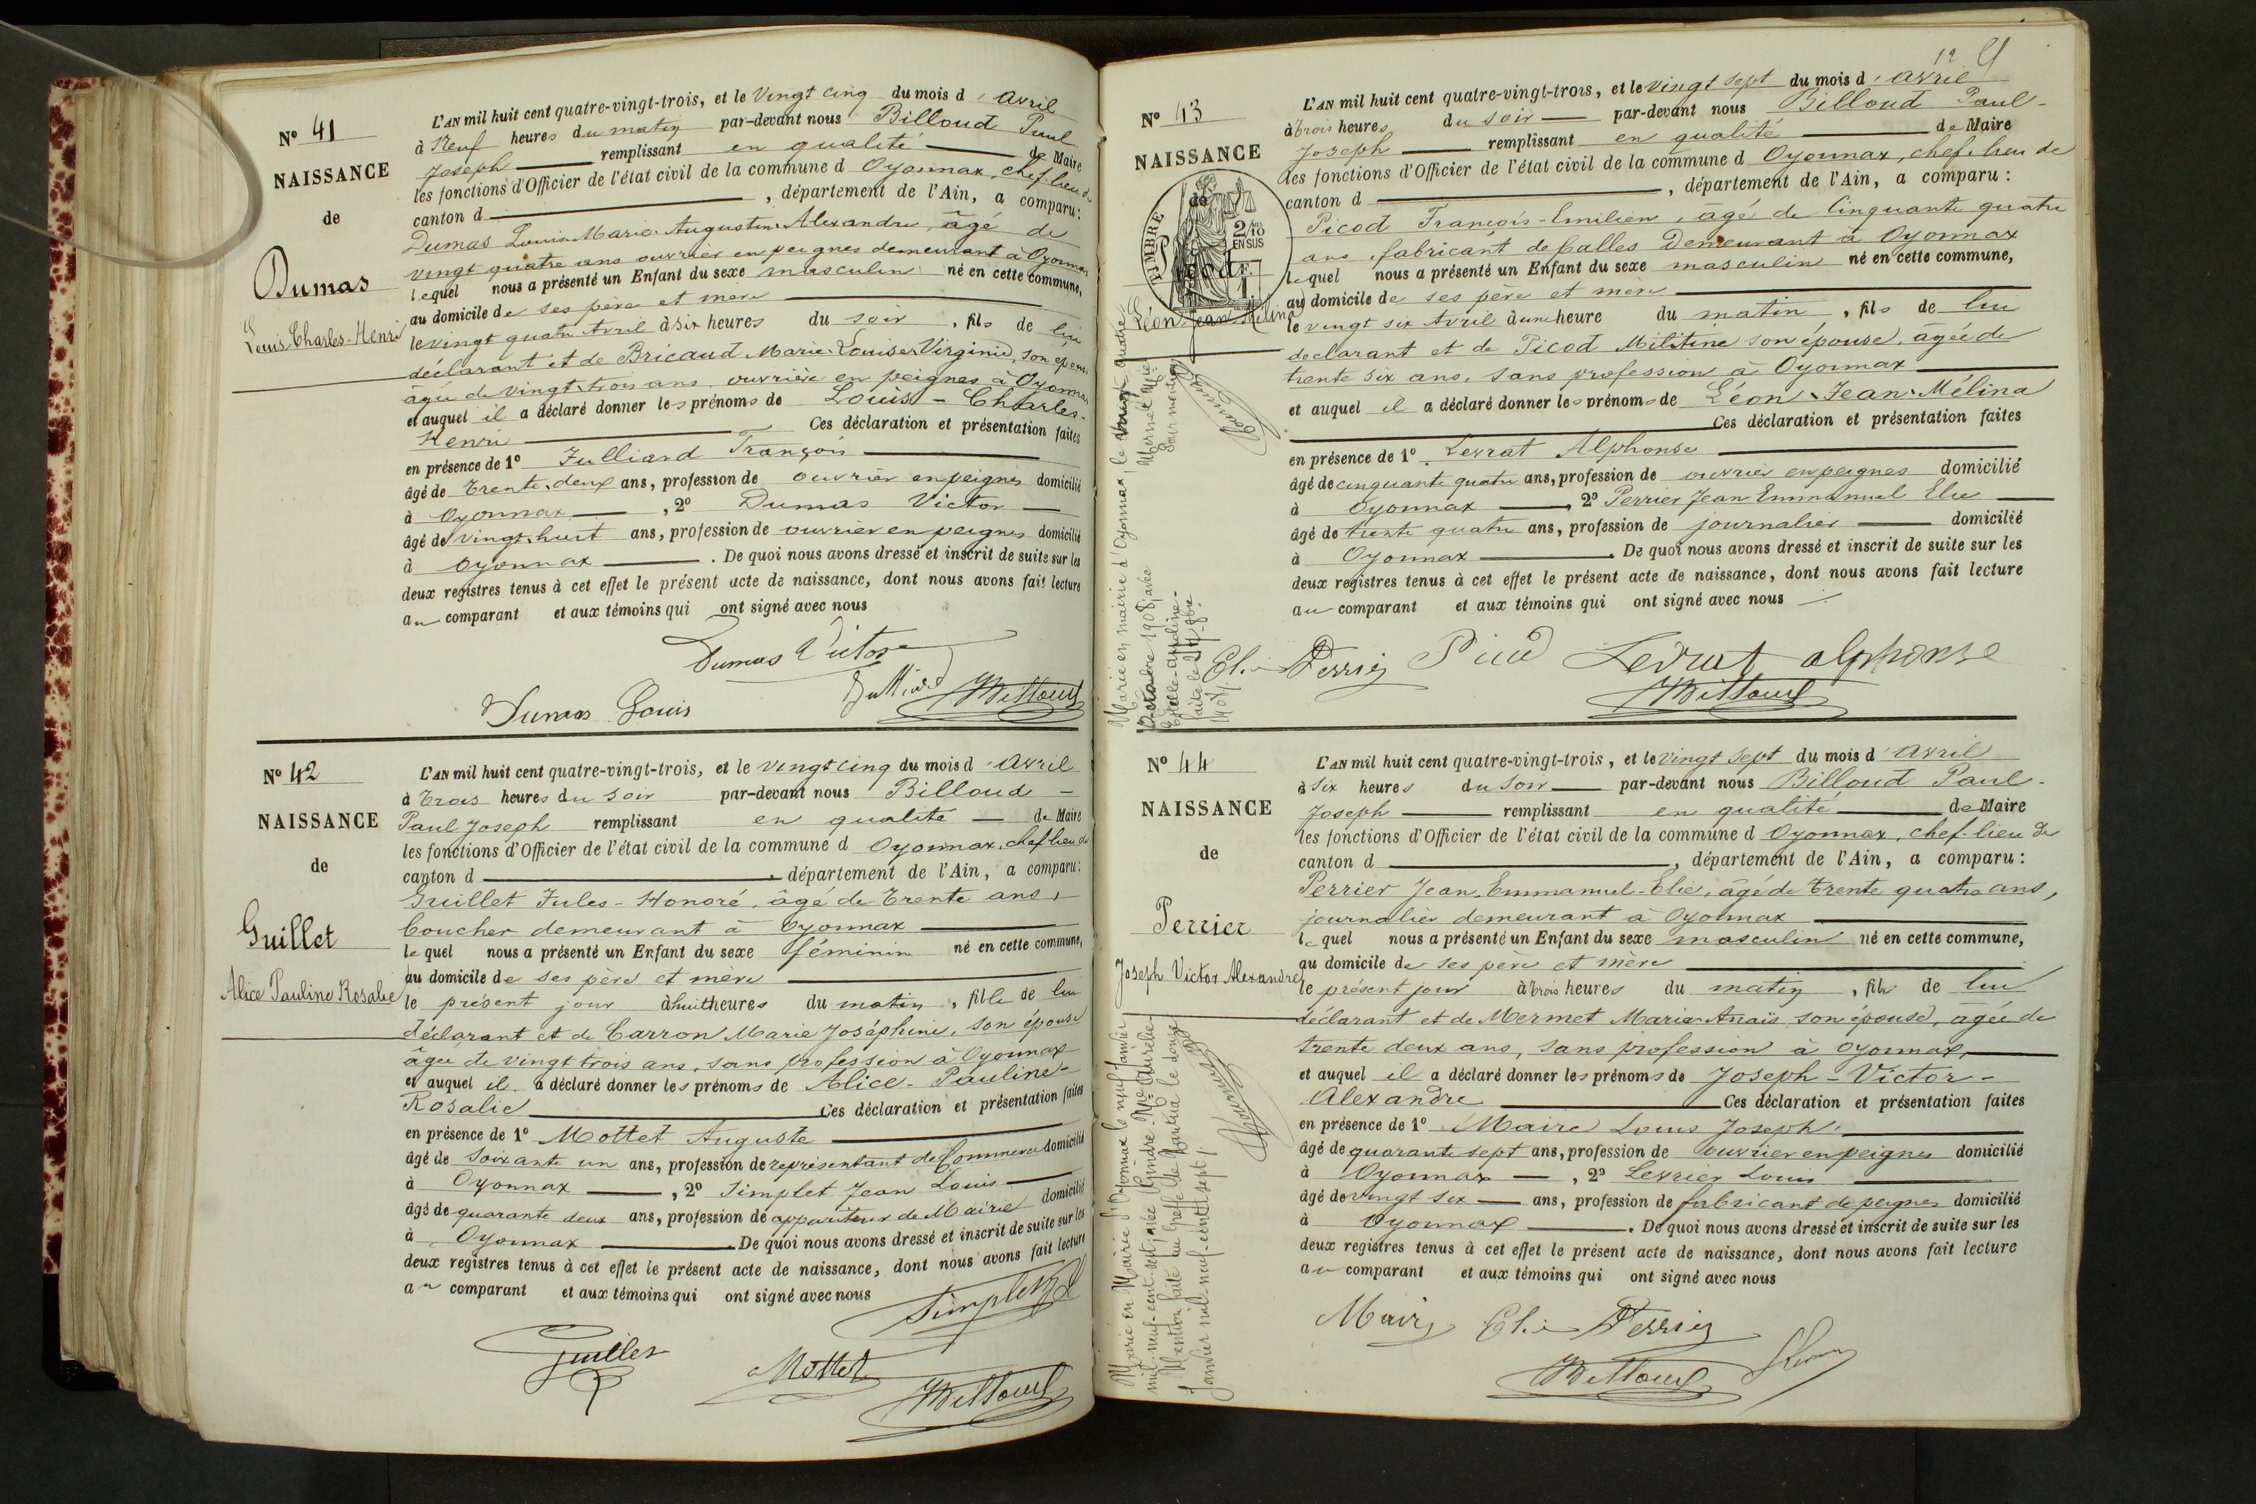 N° 41
NAISSANCE
de
Dumas
Louis-Charles-Henri
L'AN mil huit cent quatre-vingt-trois, et le Vingt cinq du mois d'Avril
à Neuf heures du matin par-devant nous Billoud Paul
Joseph remplissant en qualité de Maire
les fonctions d'Officier de l'état civil de la commune d Oyonnax, chef-lieu de
canton d , département de l'Ain, a comparu :
Dumas Louis-Marie-Augustin-Alexandre, âgé de
vingt quatre ans ouvrier en peignes demeurant à Oyonnax
lequel nous a présenté un Enfant du sexe masculin né en cette commune,
au domicile de ses père et mère
le vingt quatre Avril à six heures du soir, fils de lui
déclarant et de Bricaud Marie-Louise-Virginie, son épouse
âgée de vingt-trois ans ouvrière en peignes à Oyonnax
et auquel il a déclaré donner les prénoms de Louis-Charles-
Henri Ces déclaration et présentation faites
en présence de 1° Julliard François
âgé de trente-deux ans, profession de ouvrier en peignes domicilié
à Oyonnax, 2° Dumas Victor
âgé de vingt-huit ans, profession de ouvrier en peignes domicilié
à Oyonnax. De quoi nous avons dressé et inscrit de suite sur les
deux registres tenus à cet effet le présent acte de naissance, dont nous avons fait lecture
au comparant et aux témoins qui ont signé avec nous
Dumas Victor
Julliard
Dumas Louis
Billoud
N° 42
NAISSANCE
de
Guillet
Alice Pauline Rosalie
L'AN mil huit cent quatre-vingt-trois, et le vingt cinq du mois d'Avril
à trois heures du soir par-devant nous Billoud
Paul Joseph remplissant en qualité de Maire
les fonctions d'Officier de l'état civil de la commune d Oyonnax, chef lieu de
canton d , département de l'Ain, a comparu :
Guillet Jules-Honoré, âgé de trente ans,
boucher demeurant à Oyonnax
lequel nous a présenté un Enfant du sexe féminin né en cette commune,
au domicile de ses père et mère
le présent jour à huit heures du matin, fille de lui
déclarant et de Carron Marie Joséphine, son épouse
âgée de vingt trois ans, sans profession à Oyonnax
et auquel il a déclaré donner les prénoms de Alice-Pauline-
Rosalie Ces déclaration et présentation faites
en présence de 1° Mottet Auguste
âgé de soixante un ans, profession de représentant de Commerce domicilié
à Oyonnax, 2° Simplet Jean Louis
âgé de quarante deux ans, profession de appariteur de Mairie domicilié
à Oyonnax. De quoi nous avons dressé et inscrit de suite sur les
deux registres tenus à cet effet le présent acte de naissance, dont nous avons fait lecture
au comparant et aux témoins qui ont signé avec nous
Simplet
Guillet
Mottet
Billoud
12
N° 43
NAISSANCE
de
TIMBRE
2/10
EN SUS
Picod
Léon-Jean-Mélina
L'AN mil huit cent quatre-vingt-trois, et le vingt sept du mois d'Avril
à trois heures du soir par-devant nous Billoud Paul-
Joseph remplissant en qualité de Maire
les fonctions d'Officier de l'état civil de la commune d Oyonnax, chef-lieu de
canton d , département de l'Ain, a comparu :
Picod François-Emilien, âgé de Cinquante quatre
ans, fabricant de balles Demeurant à Oyonnax
lequel nous a présenté un Enfant du sexe masculin né en cette commune,
au domicile de ses père et mère
le vingt six Avril à une heure du matin, fils de lui
déclarant et de Picod Militine son épouse, âgée de
trente six ans, sans profession à Oyonnax
et auquel il a déclaré donner les prénoms de Léon-Jean-Mélina
Ces déclaration et présentation faites
en présence de 1° Levrat Alphonse
âgé de cinquante quatre ans, profession de ouvrier en peignes domicilié
à Oyonnax, 2° Perrier Jean Emmanuel Elie
âgé de trente quatre ans, profession de journalier domicilié
à Oyonnax. De quoi nous avons dressé et inscrit de suite sur les
deux registres tenus à cet effet le présent acte de naissance, dont nous avons fait lecture
au comparant et aux témoins qui ont signé avec nous
Elie Perrier Picod Levrat alphonse
Billoud
Marié en mairie d'Oyonnax, le vingt quatre
octobre 1908, avec Mermet
N° 44
NAISSANCE
de
Perrier
Joseph Victor Alexandre
L'AN mil huit cent quatre-vingt-trois, et le vingt sept du mois d'Avril
à six heures du soir par-devant nous Billoud Paul-
Joseph remplissant en qualité de Maire
les fonctions d'Officier de l'état civil de la commune d Oyonnax, chef-lieu de
canton d , département de l'Ain, a comparu :
Perrier Jean-Emmanuel-Elie, âgé de trente quatre ans,
journalier demeurant à Oyonnax
lequel nous a présenté un Enfant du sexe masculin né en cette commune,
au domicile de ses père et mère
le présent jour à trois heures du matin, fils de lui
déclarant et de Mermet Marie-Anaïs son épouse, âgée de
trente deux ans, sans profession à Oyonnax,
et auquel il a déclaré donner les prénoms de Joseph-Victor-
Alexandre Ces déclaration et présentation faites
en présence de 1° Maire Louis Joseph
âgé de quarante sept ans, profession de ouvrier en peignes domicilié
à Oyonnax, 2° Levrier Louis
âgé de vingt six ans, profession de fabricant de peignes domicilié
à Oyonnax. De quoi nous avons dressé et inscrit de suite sur les
deux registres tenus à cet effet le présent acte de naissance, dont nous avons fait lecture
au comparant et aux témoins qui ont signé avec nous
Maire Elie Perrier
Billoud
Marié en Mairie d'Oyonnax le neuf Janvier
mil-neuf-cent-sept, avec Gindre Aurélie
Mention faite au greffe de Nantua le douze
Janvier mil-neuf-cent sept